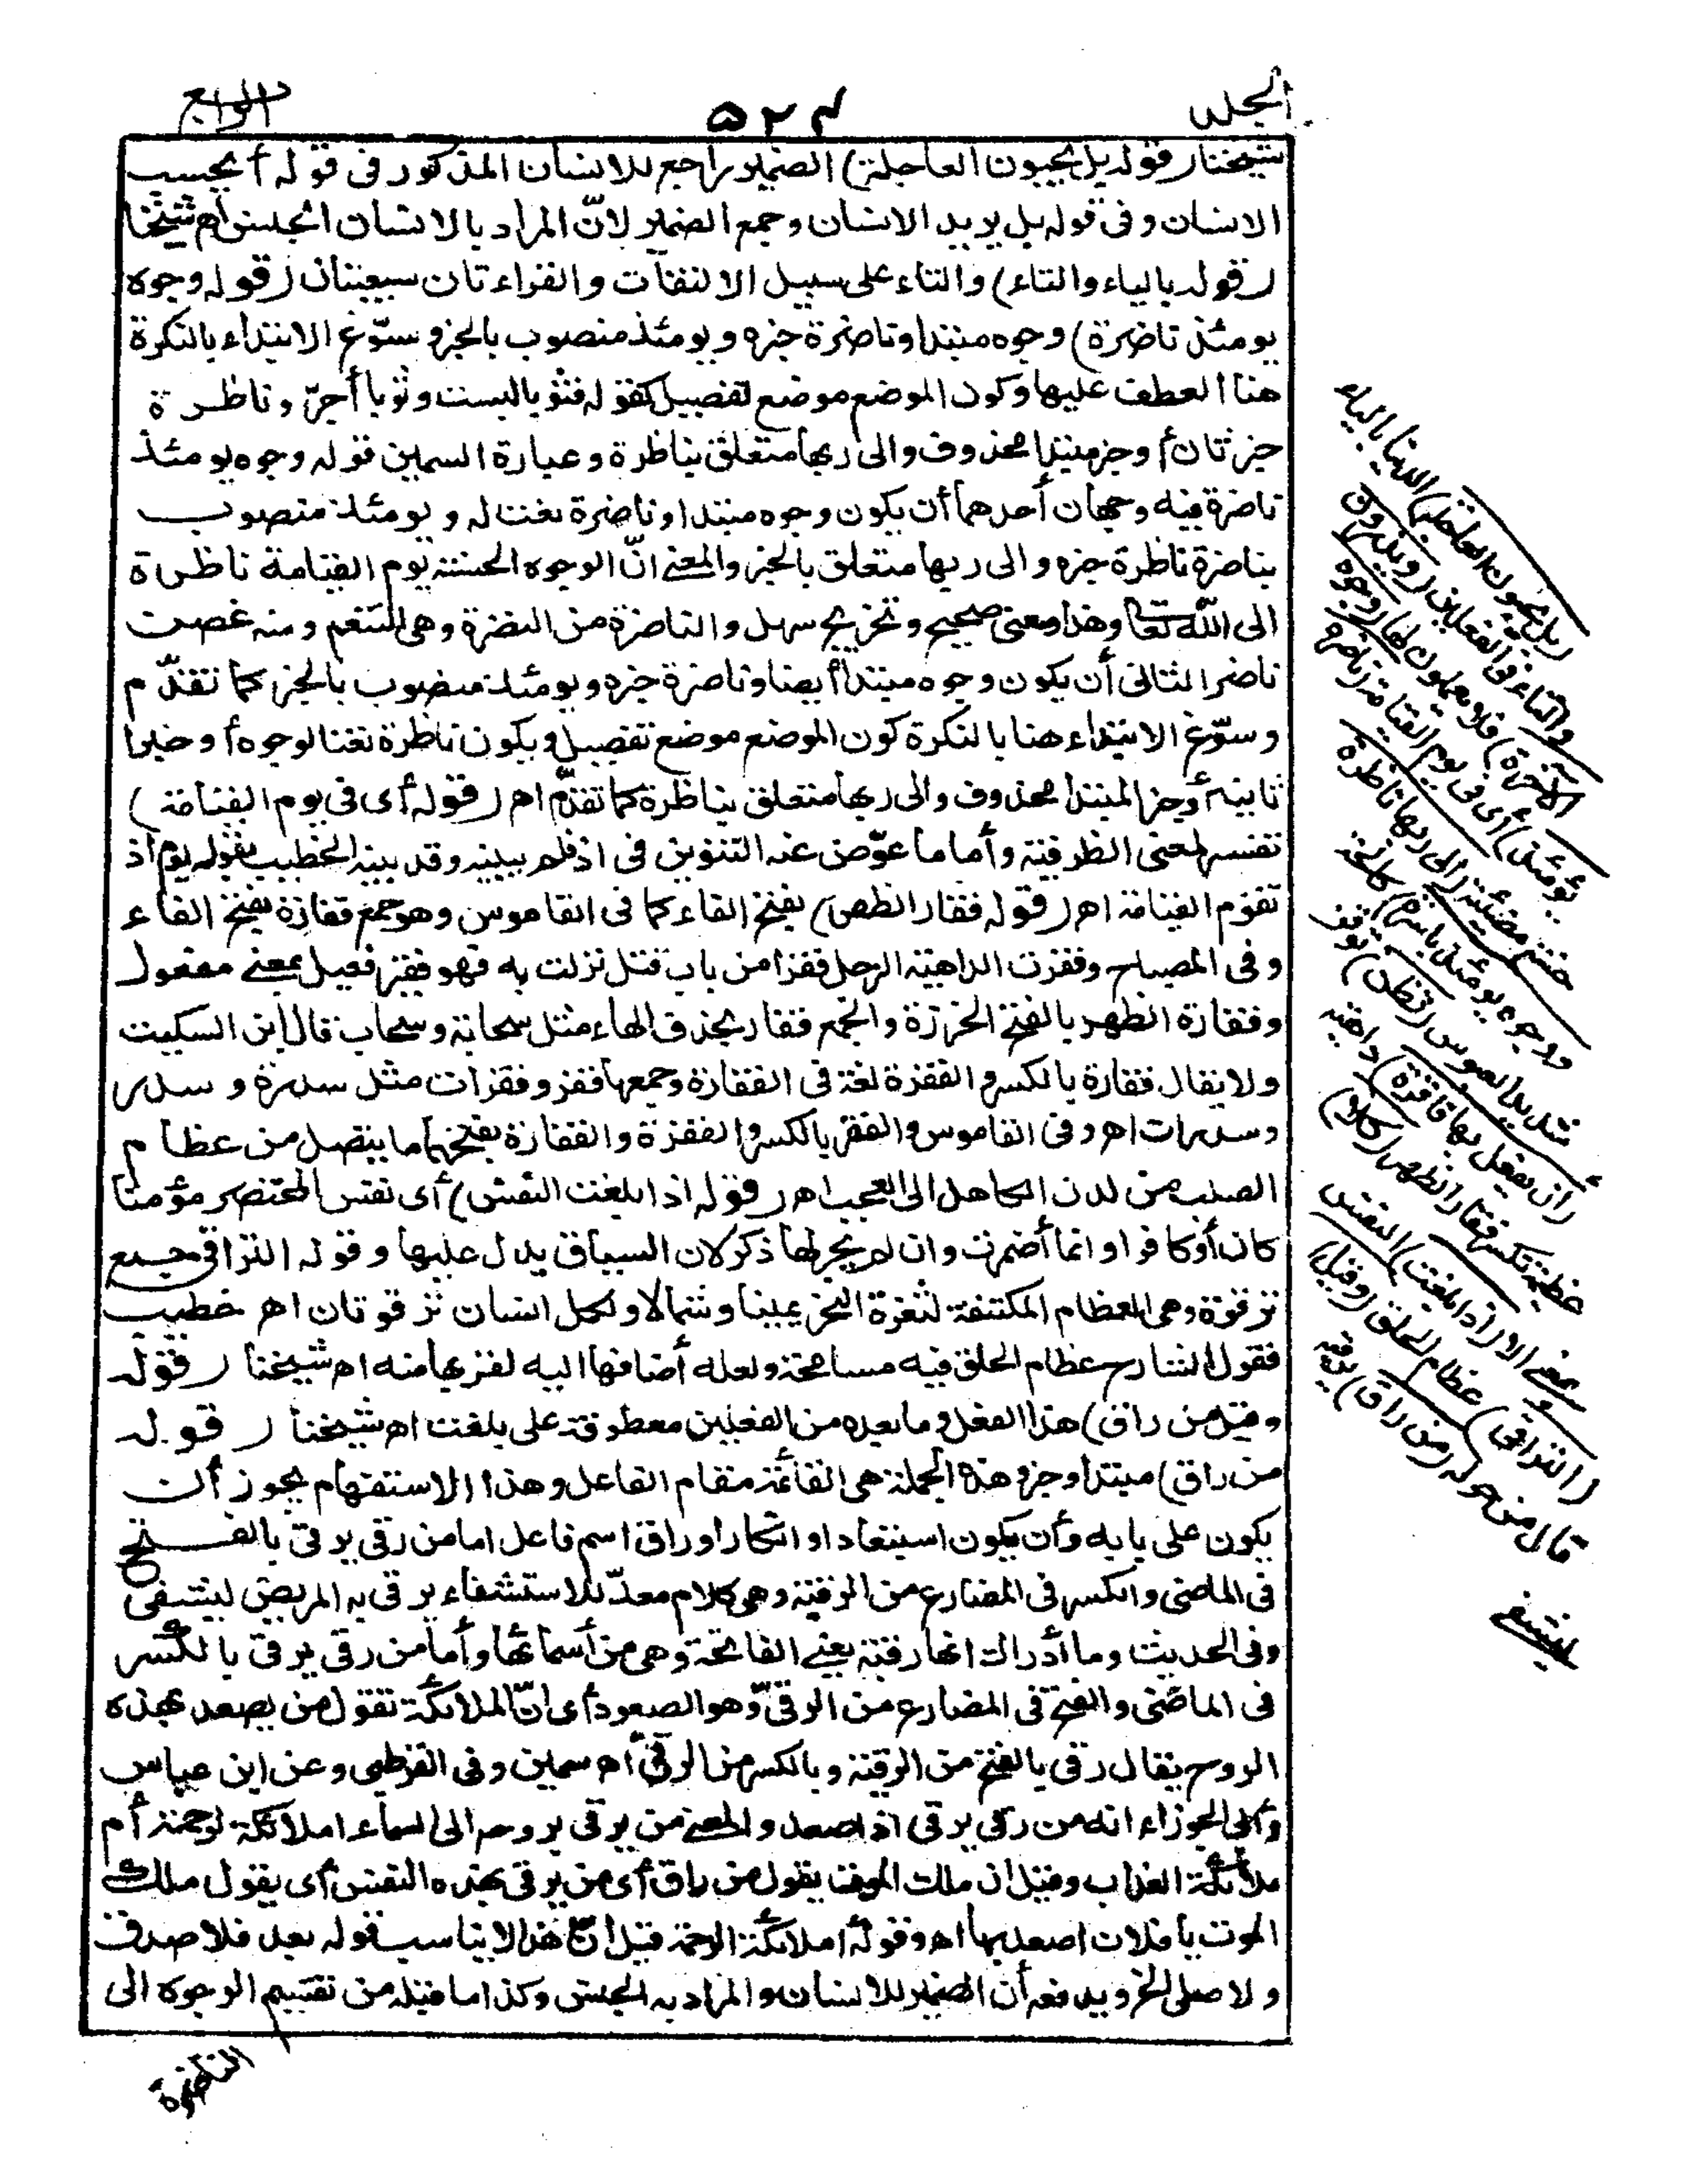 الجلد
٥٢٤
الرابع
شيخنا (قوله بل يحبون العاجلة) الضمير راجع للانسان المذكور فى قوله أيحسب
الانسان وفى قوله بل يريد الانسان وجمع الضمير لانّ المراد بالانسان الجنس اه شيخنا
(قوله بالياء والتاء) والتاء على سبيل الالتفات والقراءتان سبعيتان (قوله وجوه
يومئذ ناضرة) وجوه مبتدا وناضرة خبره ويومئذ منصوب بالخبر وسوّغ الابتداء بالنكرة
هنا العطف عليها وكون الموضع موضع تفصيل كقوله فثوب لبست وثوبا أجرّ وناظرة
خبر ثان أو خبر مبتدا محذوف والى ربها متعلق بناظرة وعبارة السمين قوله وجوه يومئذ
ناضرة فيه وجهان أحدهما أن يكون وجوه مبتدا وناضرة نعت له ويومئذ منصوب
بناضرة ناظرة خبره والى ربها متعلق بالخبر والمعنى انّ الوجوه الحسنة يوم القيامة ناظرة
الى الله تعالى وهذا معنى صحيح وتخريج سهل والناضرة من النضرة وهى التنعم ومنه غصن
ناضر الثانى أن يكون وجوه مبتدأ أيضا وناضرة خبره ويومئذ منصوب بالخبر كما تقدّم
وسوّغ الابتداء هنا بالنكرة كون الموضع موضع تفصيل ويكون ناظرة نعتا لوجوه أو خبرا
ثانيا أو خبر المبتدا محذوف والى ربها متعلق بناظرة كما تقدّم اه (قوله أى فى يوم القيامة)
تفسير لمعنى الظرفية وأما ما عوّض عنه التنوين فى اذ فلم يبينه وقد بينه الخطيب بقوله يوم اذ
تقوم القيامة اه (قوله فقار الظهر) بفتح الفاء كما فى القاموس وهو جمع فقارة بفتح الفاء
وفى المصباح وفقرت الداهية الرجل فقرا من باب قتل نزلت به فهو فقير فعيل بمعنى مفعول
وفقارة الظهر بالفتح الخرزة والجمع فقار بحذف الهاء مثل سحابة وسحاب قال ابن السكيت
ولا يقال فقارة بالكسر والفقرة لغة فى الفقارة وجمعها فقر وفقرات مثل سدرة وسدر
وسدرات اه وفى القاموس والفقر بالكسر والفقرة والفقارة بفتحهما ما ينتصل من عظام
الصلب من لدن الكاهل الى العجب اه (قوله اذا بلغت النفس) أى نفس المحتضر مؤمنا
كان أو كافرا وانما أضمرت وان لم يجر لها ذكر لان السياق يدل عليها وقوله التراقى جمع
ترقوة وهى العظام المكتنفة لثغرة النحر يمينا وشمالا ولكل انسان ترقوتان اه خطيب
فقول الشارح عظام الحلق فيه مسامحة ولعله أضافها اليه لقربها منه اه شيخنا (قوله
وقيل من راق) هذا الفعل وما بعده من الفعلين معطوفة على بلغت اه شيخنا (قوله
من راق) مبتدا وخبر وهذه الجملة هى القائمة مقام الفاعل وهذا الاستفهام يجوز أن
يكون على بابه وأن يكون استبعادا وانكارا وراق اسم فاعل اما من رقى يرقى بالفتح
فى الماضى والكسر فى المضارع من الرقية وهو كلام معدّ للاستشفاء يرقى به المريض ليشفى
وفى الحديث وما أدراك انها رقية يعنى الفاتحة وهى من أسمائها وأما من رقى يرقى بالكسر
فى الماضى والفتح فى المضارع من الرقىّ وهو الصعود أى انّ الملائكة تقول من يصعد بهذه
الروح يقال رقى بالفتح من الرقية وبالكسر من الرقىّ اه سمين وفى القرطبى وعن ابن عباس
وأبى الجوزاء انه من رقى يرقى اذا صعد والمعنى من يرقى بروحه الى السماء املائكة الرحمة أم
ملائكة العذاب وقيل ان ملك الموت يقول من راق أى من يرقى بهذه النفس أى يقول ملك
الموت يا فلان اصعد بها اه وقوله أملائكة الرحمة قيل انّ هذا لا يناسب قوله بعد فلا صدق
ولا صلى الخ ويدفعه أن الضمير للانسان والمراد به الجنس وكذا ما قبله من تقسيم الوجوه الى
الناضرة
(بل يحبون العاجلة) الدنيا بالياء
والتاء فى الفعلين (ويذرون
الآخرة) فلا يعملون لها (وجوه
يومئذ) أى فى يوم القيامة (ناضرة)
حسنة مضيئة (الى ربها ناظرة
ووجوه يومئذ باسرة) كالحة
شديدة العبوس (تظن) توقن
(أن يفعل بها فاقرة) داهية
عظيمة تكسر فقار الظهر (كلا)
بمعنى الا (اذا بلغت) النفس
(التراقى) عظام الحلق (وقيل)
قال من حوله (من راق) يرقيه
ليشفى